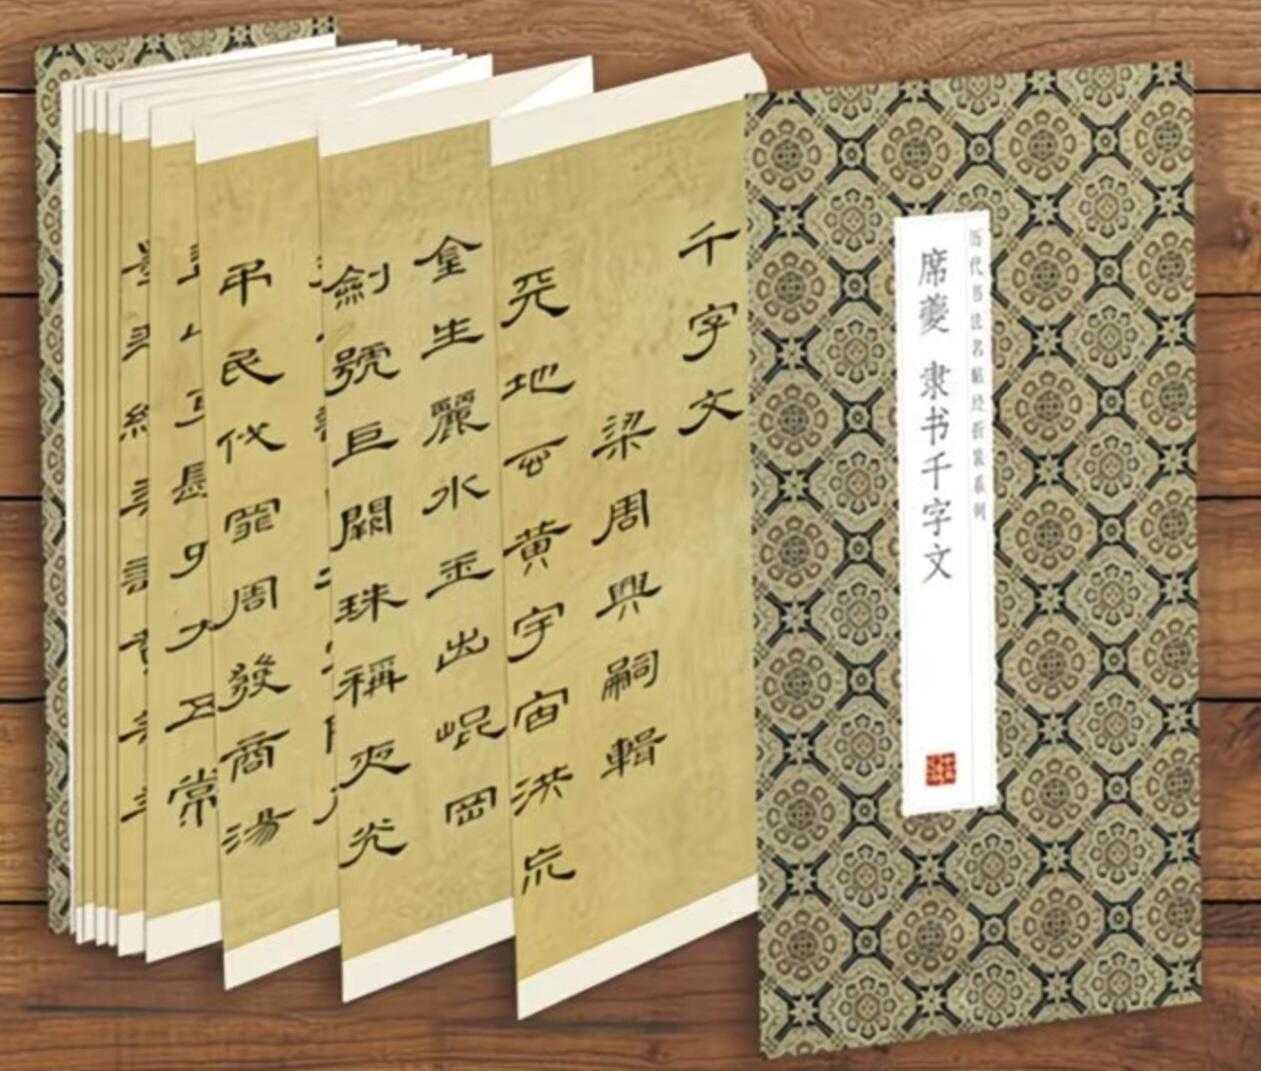 历代书法名帖经折装系列
席夔 隶书千字文
千字文
梁周興嗣輯
天地玄黄宇宙洪荒
金生麗水玉出崐岡
劍號巨闕珠稱夜光
弔民伐罪周發商湯
五常